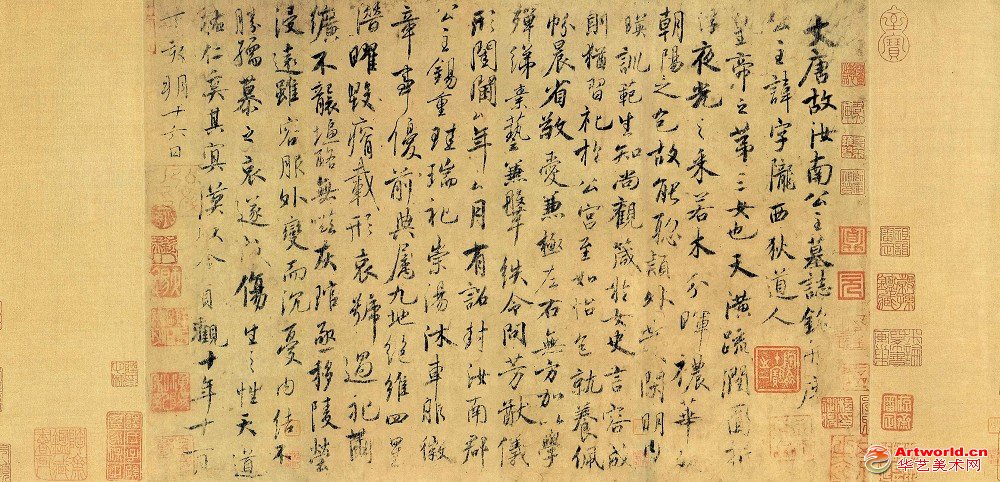 大唐故汝南公主墓誌銘并序
公主諱字隴西狄道人
皇帝之第三女也天潢疏潤圓折
浮夜光之采若木分暉穠華照
朝陽之色故能聡穎外發閑明内
暎訓範生知尚觀箴於女史言容成
則猶習礼於公宮至如怡色就養佩
帉晨省敬愛兼極左右無方加以學
殫綈素藝兼鞶紩令問芳猷儀
形閨閫年月有詔封汝南郡
公主錫重珪瑞礼崇湯沐車服徽
章事優前典屬九地絕維四星
潛曜毀瘠載形哀號過礼繭
纊不襲塩酪無嗞灰琯亟移陵塋
浸遠雖容服外變而沉憂内結不
勝孺慕之哀遂成傷生之性天道
祐仁奚其冥漠以今貞觀十年十一月
丁亥朔十六日
Artworld.cn
华艺美术网